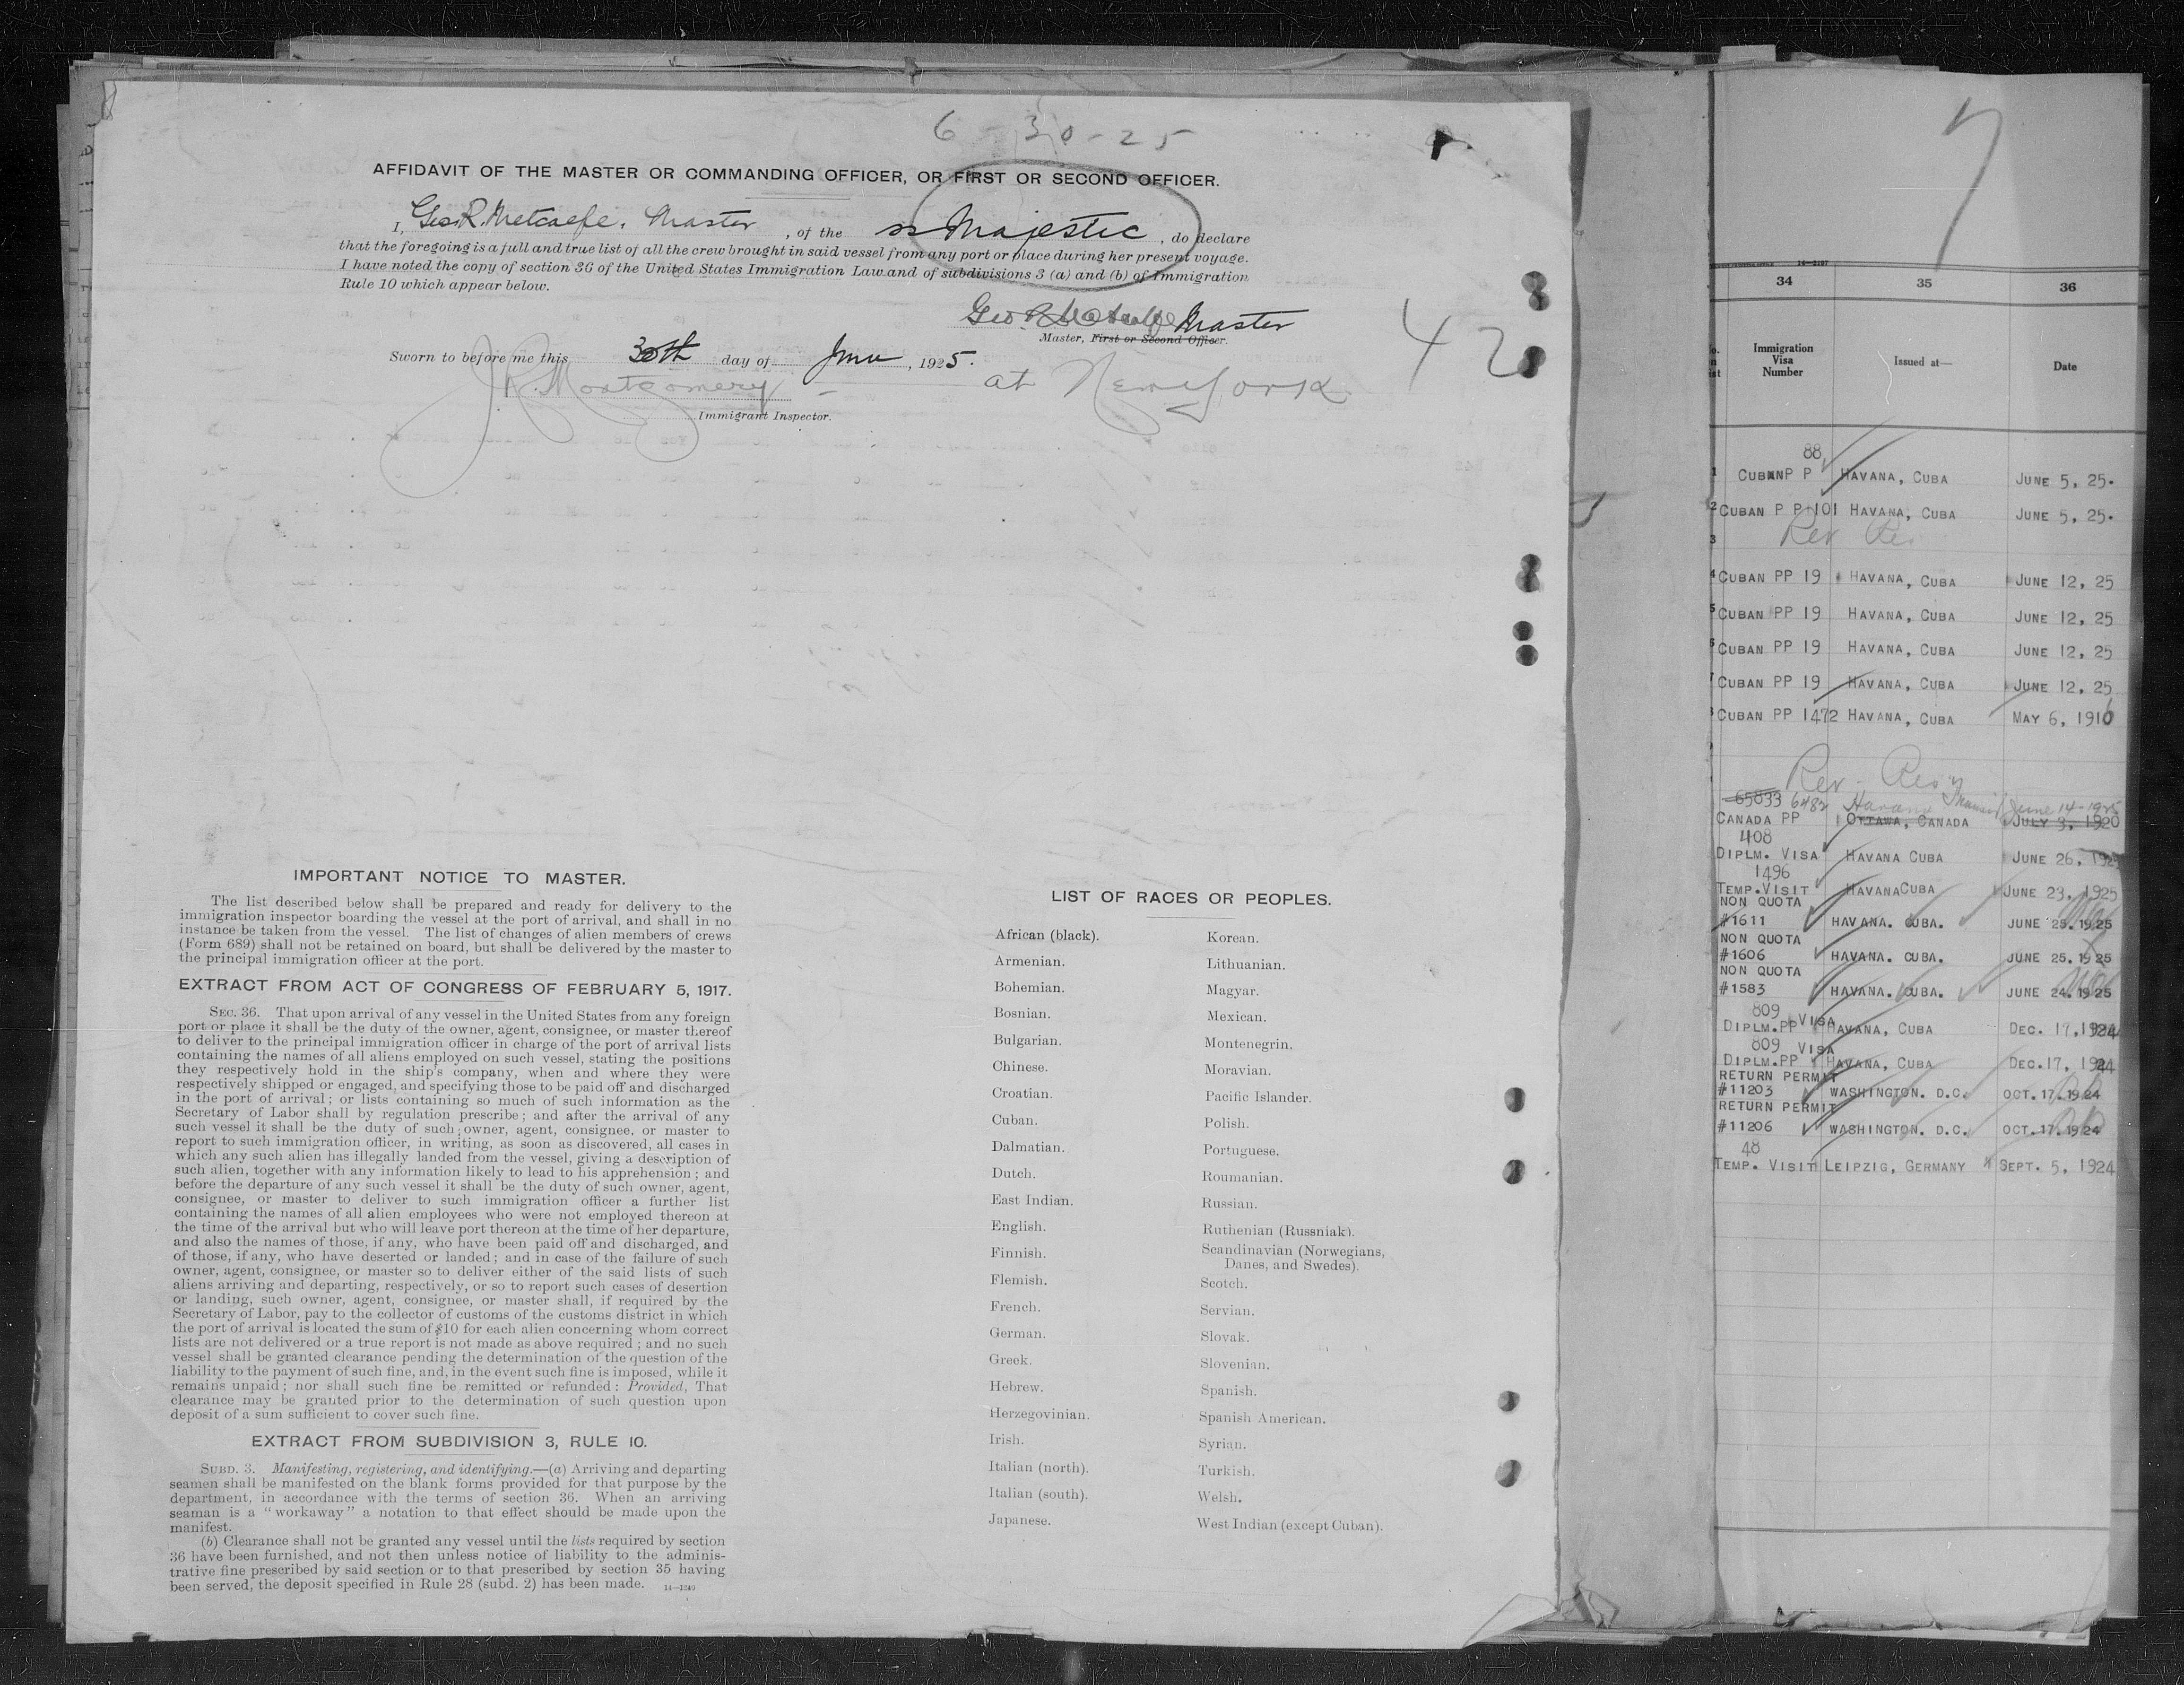 6-30-25
AFFIDAVIT OF THE MASTER OR COMMANDING OFFICER, OR FIRST OR SECOND OFFICER.
I, Geo. R. Metcalfe, Master, of the ss Majestic, do declare
that the foregoing is a full and true list of all the crew brought in said vessel from any port or place during her present voyage.
I have noted the copy of section 36 of the United States Immigration Law and of subdivisions 3 (a) and (b) of Immigration
Rule 10 which appear below.
Geo R Metcalfe Master
Master, First or Second Officer.
42
Sworn to before me this 30th day of June, 1925.
J R Montgomery
at New York
Immigrant Inspector.
IMPORTANT NOTICE TO MASTER.
The list described below shall be prepared and ready for delivery to the
immigration inspector boarding the vessel at the port of arrival, and shall in no
instance be taken from the vessel. The list of changes of alien members of crews
(Form 689) shall not be retained on board, but shall be delivered by the master to
the principal immigration officer at the port.
EXTRACT FROM ACT OF CONGRESS OF FEBRUARY 5, 1917.
SEC. 36. That upon arrival of any vessel in the United States from any foreign
port or place it shall be the duty of the owner, agent, consignee, or master thereof
to deliver to the principal immigration officer in charge of the port of arrival lists
containing the names of all aliens employed on such vessel, stating the positions
they respectively hold in the ship's company, when and where they were
respectively shipped or engaged, and specifying those to be paid off and discharged
in the port of arrival; or lists containing so much of such information as the
Secretary of Labor shall by regulation prescribe; and after the arrival of any
such vessel it shall be the duty of such owner, agent, consignee, or master to
report to such immigration officer, in writing, as soon as discovered, all cases in
which any such alien has illegally landed from the vessel, giving a description of
such alien, together with any information likely to lead to his apprehension; and
before the departure of any such vessel it shall be the duty of such owner, agent,
consignee, or master to deliver to such immigration officer a further list
containing the names of all alien employees who were not employed thereon at
the time of the arrival but who will leave port thereon at the time of her departure,
and also the names of those, if any, who have been paid off and discharged, and
of those, if any, who have deserted or landed; and in case of the failure of such
owner, agent, consignee, or master so to deliver either of the said lists of such
aliens arriving and departing, respectively, or so to report such cases of desertion
or landing, such owner, agent, consignee, or master shall, if required by the
Secretary of Labor, pay to the collector of customs of the customs district in which
the port of arrival is located the sum of $10 for each alien concerning whom correct
lists are not delivered or a true report is not made as above required; and no such
vessel shall be granted clearance pending the determination of the question of the
liability to the payment of such fine, and, in the event such fine is imposed, while it
remains unpaid; nor shall such fine be remitted or refunded: Provided, That
clearance may be granted prior to the determination of such question upon
deposit of a sum sufficient to cover such fine.
EXTRACT FROM SUBDIVISION 3, RULE 10.
SUBD. 3. Manifesting, registering, and identifying.—(a) Arriving and departing
seamen shall be manifested on the blank forms provided for that purpose by the
department, in accordance with the terms of section 36. When an arriving
seaman is a "workaway" a notation to that effect should be made upon the
manifest.
(b) Clearance shall not be granted any vessel until the lists required by section
36 have been furnished, and not then unless notice of liability to the adminis-
trative fine prescribed by said section or to that prescribed by section 35 having
been served, the deposit specified in Rule 28 (subd. 2) has been made. 14—1240
LIST OF RACES OR PEOPLES.
African (black). Korean.
Armenian. Lithuanian.
Bohemian. Magyar.
Bosnian. Mexican.
Bulgarian. Montenegrin.
Chinese. Moravian.
Croatian. Pacific Islander.
Cuban. Polish.
Dalmatian. Portuguese.
Dutch. Roumanian.
East Indian. Russian.
English. Ruthenian (Russniak).
Finnish. Scandinavian (Norwegians,
Danes, and Swedes).
Flemish. Scotch.
French. Servian.
German. Slovak.
Greek. Slovenian.
Hebrew. Spanish.
Herzegovinian. Spanish American.
Irish. Syrian.
Italian (north). Turkish.
Italian (south). Welsh.
Japanese. West Indian (except Cuban).
7
34 35 36
Immigration
Visa
Number
Issued at—
Date
88
CUBAN P P HAVANA, CUBA JUNE 5, 25.
2 CUBAN P P 1101 HAVANA, CUBA JUNE 5, 25.
3 Rev Res
4 CUBAN PP 19 HAVANA, CUBA JUNE 12, 25
5 CUBAN PP 19 HAVANA, CUBA JUNE 12, 25
6 CUBAN PP 19 HAVANA, CUBA JUNE 12, 25
7 CUBAN PP 19 HAVANA, CUBA JUNE 12, 25
CUBAN PP 1472 HAVANA, CUBA MAY 6, 1916
Rev - Res
65833 6482 Havana June 14-1925
CANADA PP OTTAWA, CANADA JULY 3, 1920
408
DIPLM. VISA HAVANA CUBA JUNE 26, 1925
1496
TEMP. VISIT HAVANA CUBA JUNE 23, 1925
NON QUOTA
#1611 HAVANA. CUBA. JUNE 25. 1925
NON QUOTA
#1606 HAVANA. CUBA. JUNE 25. 1925
NON QUOTA
#1583 HAVANA. CUBA. JUNE 24. 1925
809 VISA
DIPLM. PP HAVANA, CUBA DEC. 17, 1924
809 VISA
DIPLM. PP HAVANA, CUBA DEC. 17, 1924
RETURN PERMIT
#11203 WASHINGTON. D.C. OCT. 17. 1924
RETURN PERMIT
#11206 WASHINGTON. D.C. OCT. 17. 1924
48
TEMP. VISIT LEIPZIG, GERMANY SEPT. 5, 1924